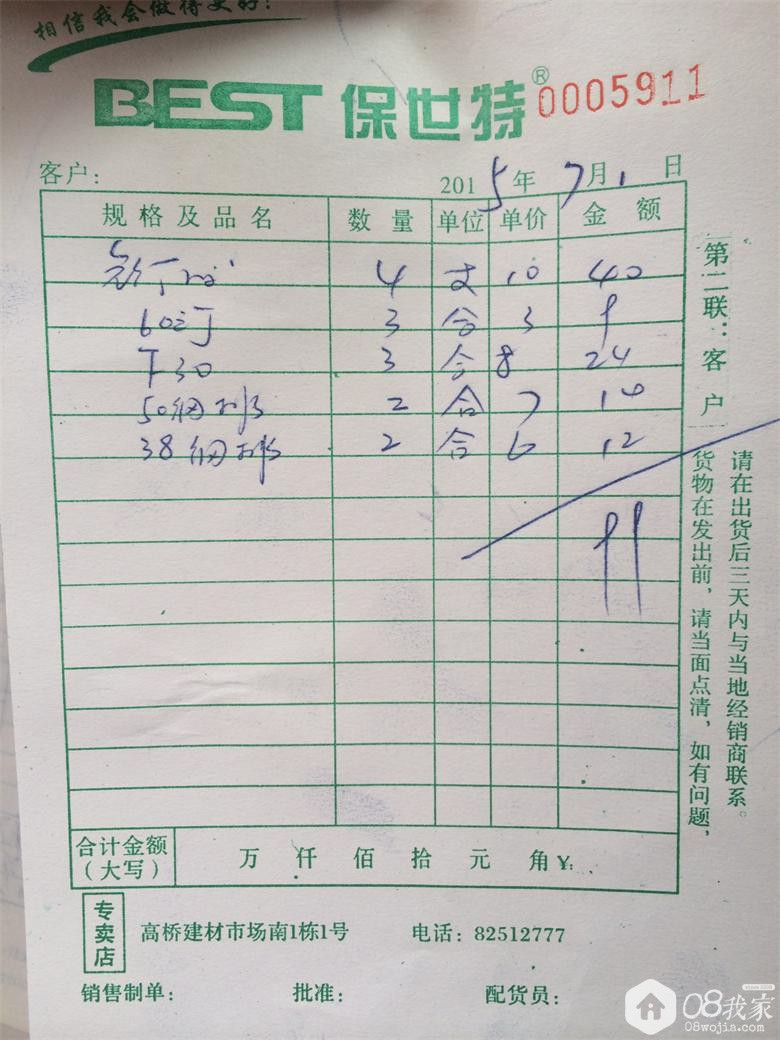 相信我会做得更好!
BEST 保世特® 0005911
客户: 2015年7月1日
规格及品名 数量 单位 单价 金额
4 支 10 40
60 3 合 3 9
F30 3 合 8 24
50钢排 2 合 7 14
38钢排 2 合 6 12
99
合计金额(大写) 万 仟 佰 拾 元 角 ¥:
专卖店 高桥建材市场南1栋1号 电话: 82512777
销售制单: 批准: 配货员:
第二联:客户
请在出货后三天内与当地经销商联系。
货物在发出前,请当面点清,如有问题,
08我家
08wojia.com